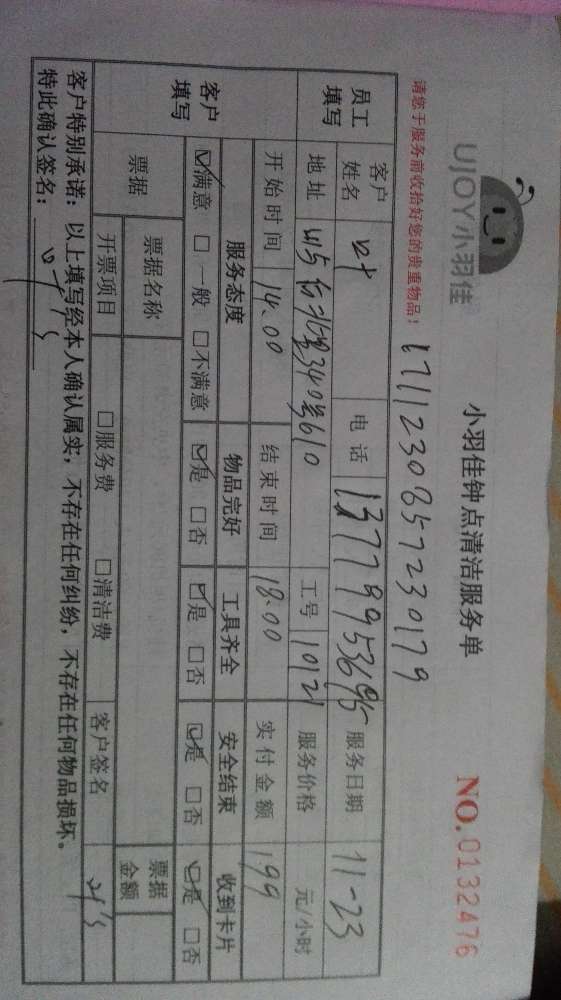 UJOY小羽佳
小羽佳钟点清洁服务单
NO.0132476
请您于服务前收拾好您的贵重物品!
1711230857230179
员工填写 客户姓名 叶 电话 服务日期 11-23
地址 340号610 工号 10121 服务价格 元/小时
开始时间 14.00 结束时间 18.00 实付金额 199
客户填写 服务态度 物品完好 工具齐全 安全结束 收到卡片
☑满意 □一般 □不满意 ☑是 □否 ☑是 □否 ☑是 □否 ☑是 □否
票据 票据名称 票据金额
开票项目 □服务费 □清洁费 客户签名
客户特别承诺:以上填写经本人确认属实,不存在任何纠纷,不存在任何物品损坏。
特此确认签名: